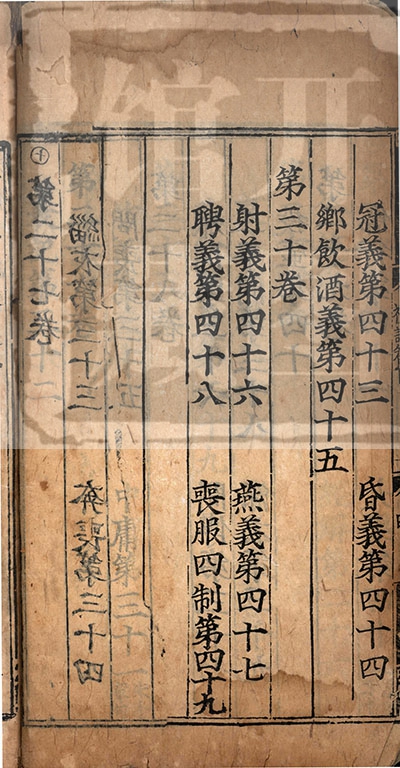 冠義第四十三 昏義第四十四
鄉飲酒義第四十五
第三十卷
射義第四十六 燕義第四十七
聘義第四十八 喪服四制第四十九
中庸第三十一
緇衣第三十三 奔喪第三十四
第二十七卷